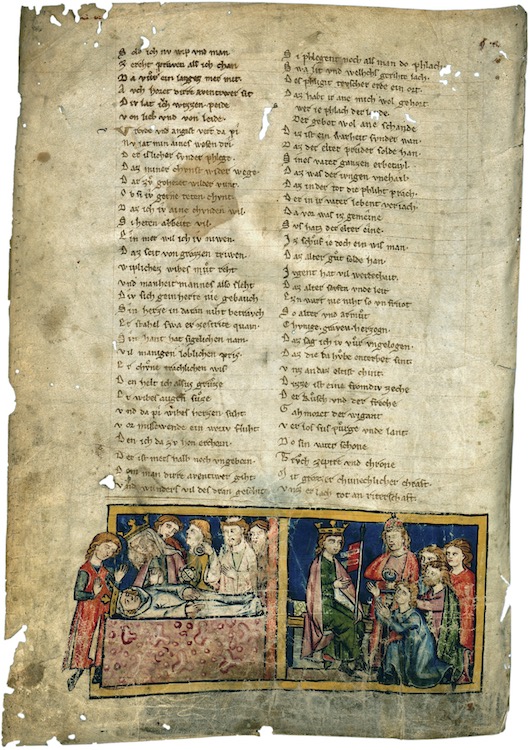 Solt ich nv wip vnd man
Zerecht prüven als ich chan
Da vür ein langez mer mit.
Nv horet dirre aventiwer sit
Div lat ivch wizzen peide
Von lieb vnd von leide.
Vrevde vnd angest vert da pi
Nv lat min aines wesen dri
Der ieslicher svnder phlege
Daz miner chvnst wider wege
Dar zv gehoret wilder vunt
Ob si iv gerne teten chvnt
Daz ich iv aine chvnden wil
Si heten arbeit vil
Ein mer wil ich iv niwen
Daz seit von grozzen triwen
Wiplichez wibes reht
Vnd manheit mannes also sleht
Div sich gein herte nie gebouch
Sin hertze in daran niht betrouch
Er stahel swa er ze strite quam
Sin hant hat sigelichen nam
Vil manigen loblichen pris
Er chvne trachlichen wis
Den helt ich alsus grüze
Er wibes augen süze
Vnd da pi wibes hertzen suht
Vor missewende ein wariv fluht
Den ich da zv han erchorn
Der ist mers halb noch vngeborn
Dem man dirre aventiwer giht
Vnd wunders vil des dran geschiht
Si phlegent noch als man do phlach
Swa lit vnd welhisch gerihte lach
Des phligit tevscher erde ein ort
Daz habt ir ane mich wol gehort
Swer ie phlach der lande
Der gebot wol ane schande
Daz ist ein warheit svnder wan
Daz der elter prüder solde han
Sines vater gantzen erbeteil
Daz was der ivngen vnheil
Daz in der tot die phliht prach
Der in ir vater lebent veriach
Da vor was iz gemeine
Svs hatz der elter eine
Iz schuf ie doch ein wis man
Daz alter gut solde han
Ivgent hat vil werdecheit
Daz alter sivften vnde leit
Ezn wart nie niht so vnfruot
So alter vnd armüt
Chvnige graven hertzogn
Daz sag ich iv vür vngelogen
Daz die da hvbe enterbet sint
Vnz an daz eltist chint
Dizze ist eine fromdiv zeche
Der küsch vnd der freche
Gahmoret der wigant
Verlos sus pürge vnde lant
Do sin vater schone
Trvch zeptre vnd chrone
Mit grozzer chunechlicher chraft
Vnz er lach tot an riterschaft